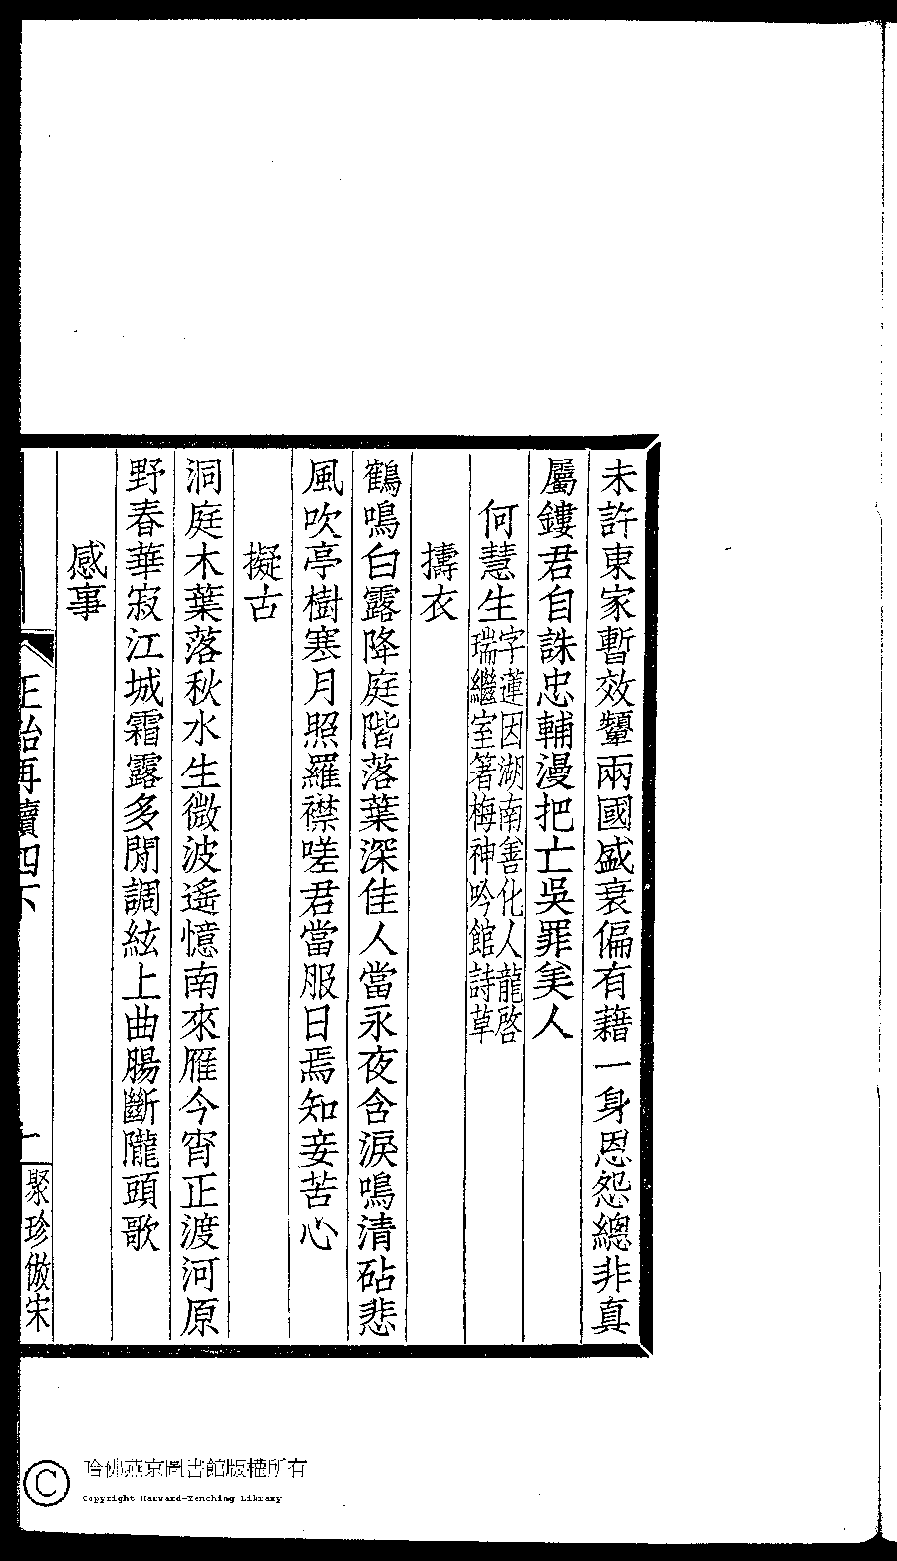 未許東家暫效顰兩國盛衰偏有藉一身恩怨總非真
屬鏤君自誅忠輔漫把亡吳罪美人
何慧生字蓮因湖南善化人龍啓
瑞繼室箸梅神吟館詩草
擣衣
鶴鳴白露降庭階落葉深佳人當永夜含淚鳴清砧悲
風吹亭樹寒月照羅襟嗟君當服日焉知妾苦心
擬古
洞庭木葉落秋水生微波遙憶南來雁今宵正渡河原
野春華寂江城霜露多閒調絃上曲腸斷隴頭歌
感事
正始再續四下
一
聚珍倣宋
哈佛燕京圖書館版權所有
Copyright Harvard-Yenching Library